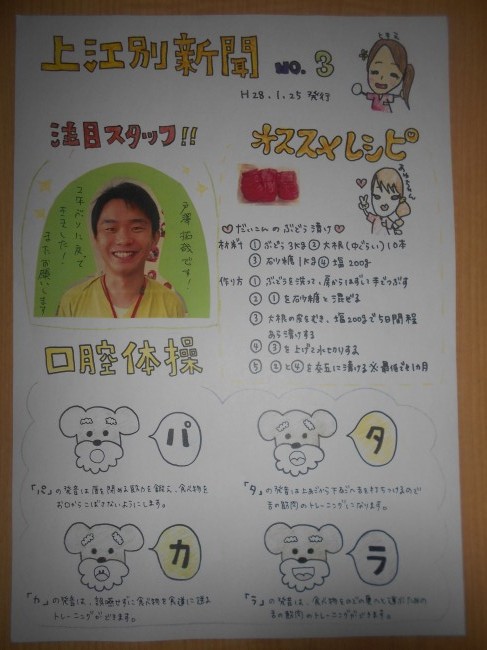 上江別新聞 NO. 3
H28.1.25 発行
注目スタッフ!!
2年ぶりに戻って
きました!
またお願いします
です!
オススメレシピ
♡だいこんのぶどう漬け♡
材料 ①ぶどう3kg ②大根(中ぐらい)10本
③砂糖1kg ④塩200g
作り方 ①ぶどうを洗って、房からはずし手でつぶす
②①を砂糖と混ぜる
③大根の皮をむき、塩200gで5日間程
あら漬けする
④③を上げて水切りする
⑤②と④を交互に漬ける ※最低でも1カ月
口腔体操
パ
「パ」の発音は唇を閉める筋力を鍛え、食べ物を
お口からこぼさないようにします。
タ
「タ」の発音は上あごから下あごへ舌を打ちつけるので
舌の筋肉のトレーニングになります。
カ
「カ」の発音は、誤嚥せずに食べ物を食道に送る
トレーニングができます。
ラ
「ラ」の発音は、食べ物をのどの奥へと運ぶための
舌の筋肉のトレーニングができます。